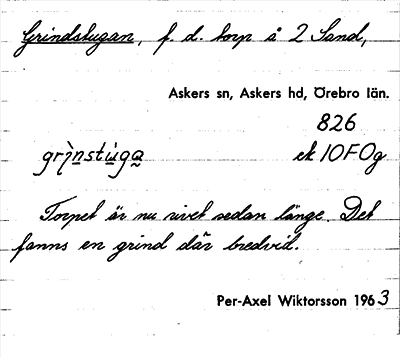 Grindstugan, f. d. torp å 2 Sand,
Askers sn, Askers hd, Örebro län.
826
grı̀nstùga ek 10FOg
Torpet är nu rivet sedan länge. Det
fanns en grind där bredvid.
Per-Axel Wiktorsson 1963